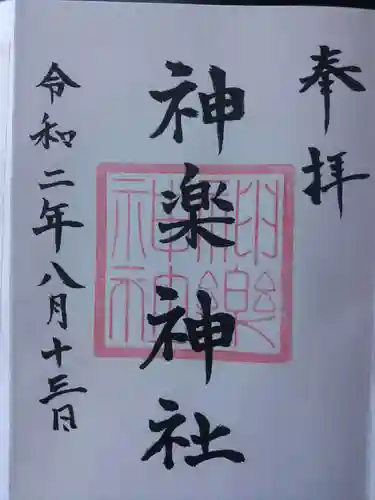 奉拝
神楽神社
神楽神社
令和二年八月十三日